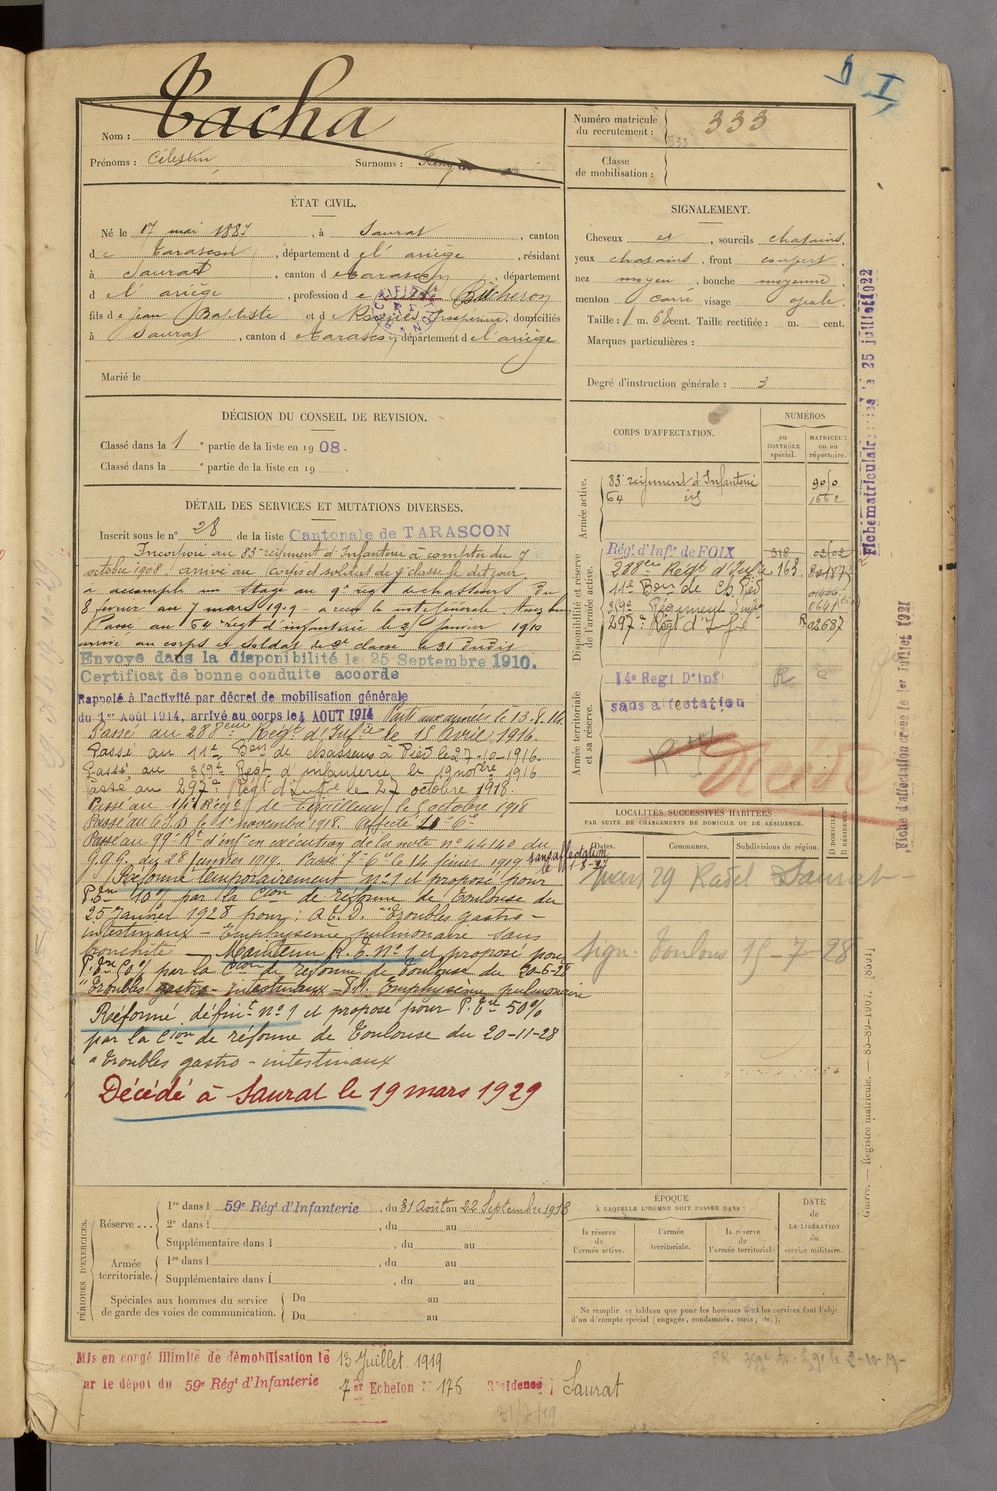 I
Nom : Tacha
Prénoms : Célestin Surnoms :
Numéro matricule du recrutement : 333
Classe de mobilisation :
ÉTAT CIVIL.
Né le 17 mai 1887, à Saurat, canton
de Tarascon, département de l'ariège, résidant
à Saurat, canton de Tarascon, département
de l'ariège, profession de Bûcheron
fils de jean Baptiste et de domiciliés
à Saurat, canton de Tarascon, département de l'ariège
Marié le
SIGNALEMENT.
Cheveux et, sourcils chatains,
yeux chatains, front couvert,
nez moyen, bouche moyenne,
menton carré, visage ovale.
Taille : 1 m. 68 cent. Taille rectifiée : m. cent.
Marques particulières :
Degré d'instruction générale : 3
DÉCISION DU CONSEIL DE REVISION.
Classé dans la 1e partie de la liste en 1908.
Classé dans la e partie de la liste en 19 .
DÉTAIL DES SERVICES ET MUTATIONS DIVERSES.
Inscrit sous le n° 28 de la liste Cantonale de TARASCON
Incorporé au 83e régiment d'Infanterie à compter du 7
octobre 1908, arrivé au corps et soldat de 2e classe le dit jour.
a accompli un stage au 9e régt de chasseurs du
8 février au 7 mars 1909 a reçu la note Générale
Passé au 64e régt d'infanterie le janvier 1910
arrivé au corps et soldat de 2e classe le 31 dudit
Envoyé dans la disponibilité le 25 Septembre 1910.
Certificat de bonne conduite accordé
Rappelé à l'activité par décret de mobilisation générale
du 1er Août 1914, arrivé au corps le 4 AOUT 1914 Parti aux armées le 13.8.14.
Passé au 288ème Régt d'Infie le 15 Avril 1916.
Passé au 11e Bon de chasseurs à Pied le 27-10-1916.
Passé au 359e Régt d'infanterie le 19 novbre 1916
Passé au 297e Régt d'Infie le 27 octobre 1918.
Passé au 14e Régt de Tirailleurs le 5 octobre 1918
Passé au le 1er novembre 1918. affecté
Passé au 99e Rt d'infie en exécution de la note n° 44140 du
G.Q.G. du 28 janvier 1919. Passé le 14 février 1919 sans affectation
Réformé temporairement n° 1 et proposé pour
P. 10% par la Cion de réforme de Toulouse du
25 Janvier 1928 pour : Troubles gastro-
intestinaux - Emphysème pulmonaire sans
bronchite - Maintenu R.T. N° 1 et proposé pour
par la Cion de réforme de Toulouse du 20-6-28
"Troubles gastro-intestinaux - Emphysème pulmonaire
Réformé définit n° 1 et proposé pour P. 50%
par la Cion de réforme de Toulouse du 20-11-28
"Troubles gastro-intestinaux
Décédé à Saurat le 19 mars 1929
CORPS D'AFFECTATION.
NUMÉROS
au CONTRÔLE spécial.
MATRICULE ou au répertoire.
Armée active.
83e régiment d'Infanterie
64 id 1662
Disponibilité et réserve de l'armée active.
Régt d'Infie de FOIX 318
288e Régt d'Infie 163
11e Bon de Ch. Pied
359e Régiment Infie
297e Régt d'Infie R 02687
Armée territoriale et sa réserve.
14e Regt D'Inf
sans affectation
Décédé
LOCALITÉS SUCCESSIVES HABITÉES
PAR SUITE DE CHANGEMENTS DE DOMICILE OU DE RÉSIDENCE.
Dates. Communes. Subdivisions de région. D DOMICILE R RÉSIDENCE
mars 29 Radel Saurat
Sign. Toulouse 15-7-28
PÉRIODES D'EXERCICES.
Réserve ...
1re dans l 59e Régt d'Infanterie, du 31 Août au 22 Septembre 1913
2e dans l , du au
Supplémentaire dans l , du au
Armée territoriale.
1re dans l , du au
Supplémentaire dans l , du au
Spéciales aux hommes du service de garde des voies de communication.
Du au
Du au
ÉPOQUE
À LAQUELLE L'HOMME DOIT PASSER DANS :
la réserve de l'armée active.
l'armée territoriale.
la réserve de l'armée territoriale
DATE de LA LIBÉRATION du service militaire.
Ne remplir ce tableau que pour les hommes dont les services font l'objet
d'un décompte spécial (engagés, condamnés, omis, etc.).
Mis en congé illimité de démobilisation le 13 Juillet 1919
ar le dépôt du 59e Régt d'Infanterie 7er Echelon N° 176 Résidence Saurat
Fiche matriculaire 25 juillet 1922
Fiche d'affectation créée le 1er Juillet 1921
Guerre. — Registre matricule. — 83-89-1907. [8531]